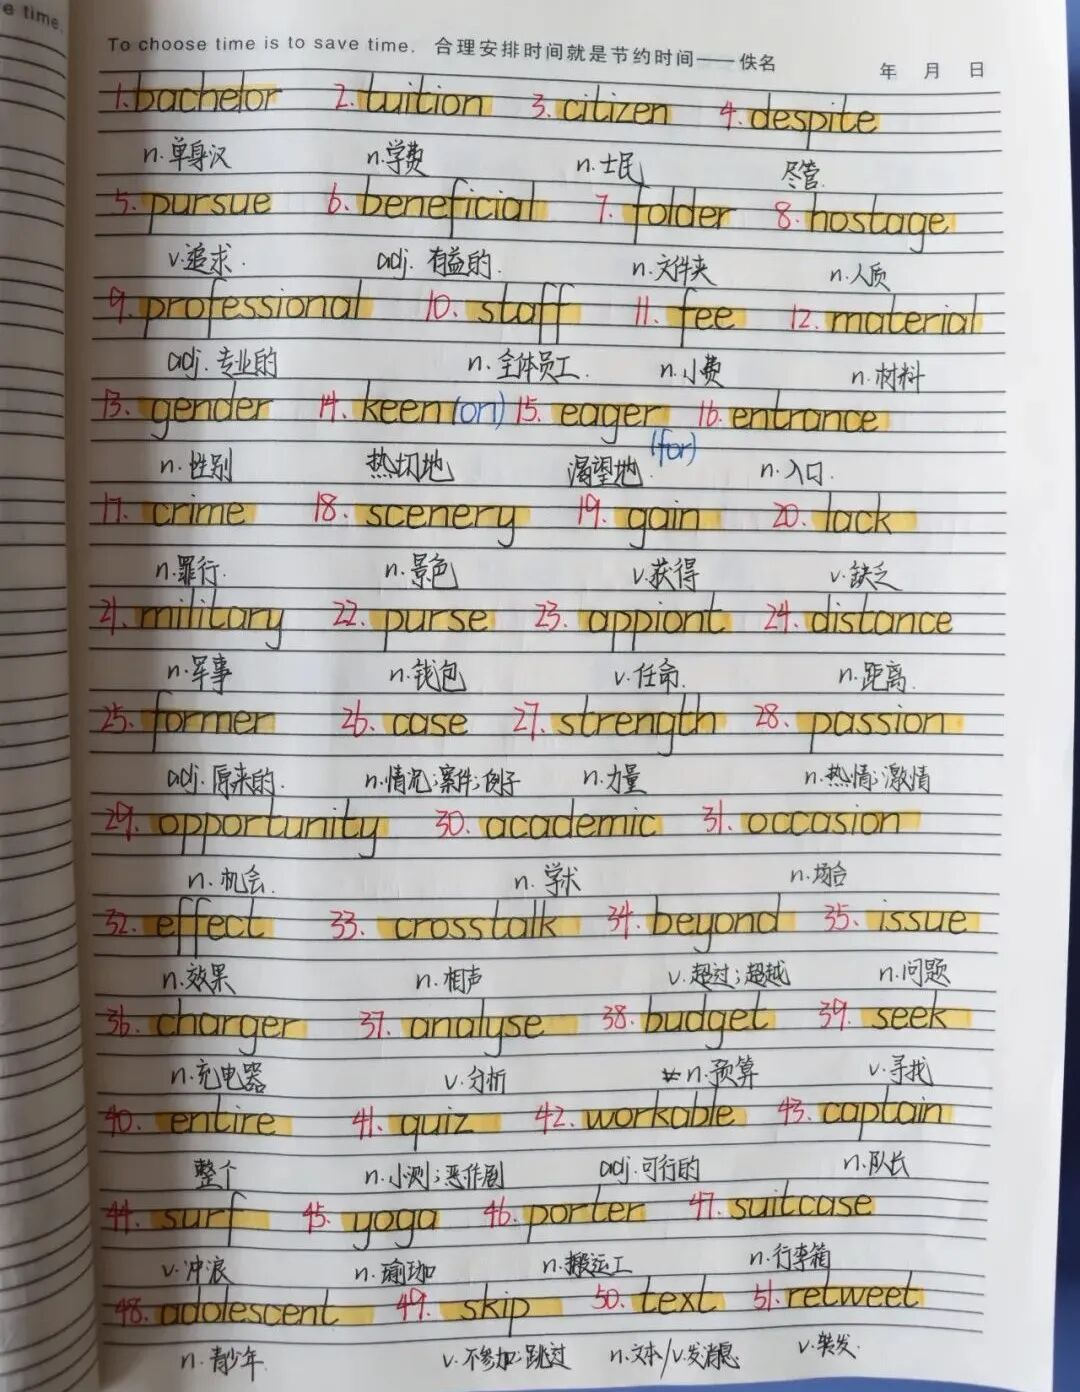 e time.
To choose time is to save time. 合理安排时间就是节约时间——佚名
年 月 日
1. bachelor 2. tuition 3. citizen 4. despite
n.单身汉 n.学费 n.士民 尽管
5. pursue 6. beneficial 7. folder 8. hostage
v.追求. adj. 有益的. n.文件夹 n.人质
9. professional 10. staff 11. fee 12. material
adj.专业的 n.全体员工. n.小费 n.材料
13. gender 14. keen (on) 15. eager 16. entrance
(for)
n.性别 热切地 渴望地. n.入口.
17. crime 18. scenery 19. gain 20. lack
n.罪行. n.景色 v.获得 v.缺乏
21. military 22. purse 23. appiont 24. distance
n.军事 n.钱包 v.任命. n.距离.
25. former 26. case 27. strength 28. passion
adj.原来的. n.情况;案件;例子 n.力量 n.热情;激情
29. opportunity 30. academic 31. occasion
n.机会. n.学术 n.场合
32. effect 33. crosstalk 34. beyond 35. issue
n.效果 n.相声 v.超过;超越 n.问题
36. charger 37. analyse 38. budget 39. seek
n.充电器 v.分析 n.预算 v.寻找
40. entire 41. quiz 42. workable 43. captain
整个 n.小测;恶作剧 adj.可行的 n.队长
44. surf 45. yoga 46. porter 47. suitcase
v.冲浪 n.瑜珈 n.搬运工 n.行李箱
48. adolescent 49. skip 50. text 51. retweet
n.青少年. v.不参加;跳过 n.文本/v.发消息 v.转发.